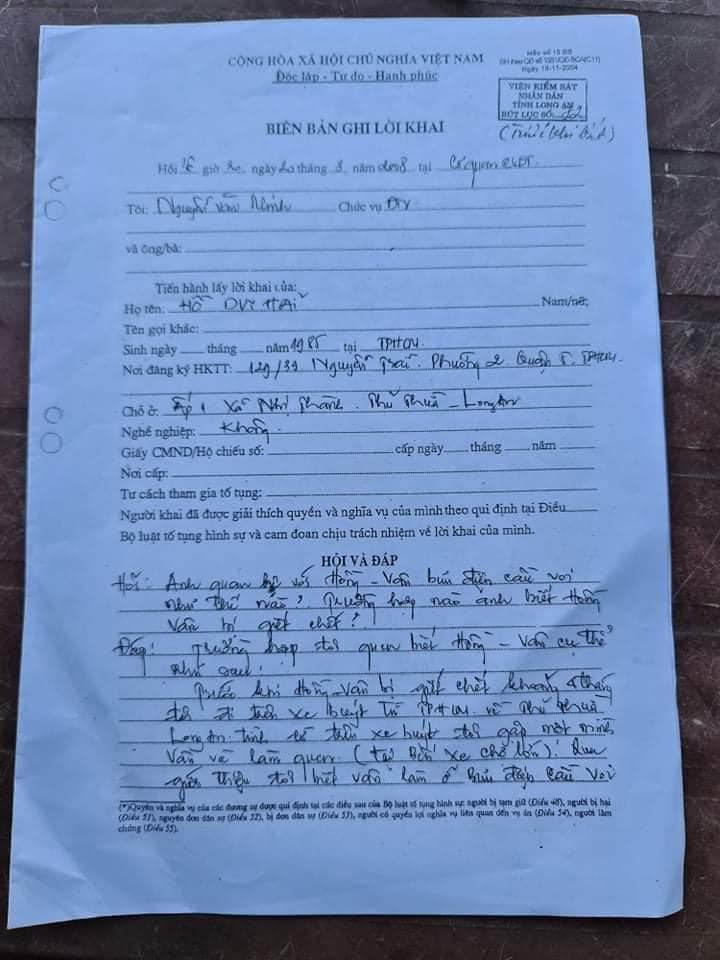 Mẫu số 15 BB
BH theo QĐ số 1351/QĐ-BCA(C11)
Ngày 18-11-2004
CỘNG HÒA XÃ HỘI CHỦ NGHĨA VIỆT NAM
Độc lập - Tự do - Hạnh phúc
VIỆN KIỂM SÁT
NHÂN DÂN
TỈNH LONG AN
BÚT LỤC SỐ:
BIÊN BẢN GHI LỜI KHAI
Hồi giờ ngày 20 tháng 3 năm 2008 tại Cơ quan CSĐT
Tôi: Nguyễn Văn Minh Chức vụ ĐTV
và ông/bà:
Tiến hành lấy lời khai của:
Họ tên: HỒ DUY HẢI Nam/nữ;
Tên gọi khác:
Sinh ngày tháng năm 1985 tại TPHCM
Nơi đăng ký HKTT: 129/39 Nguyễn Trãi. Phường 2 Quận 5. TPHCM.
Chỗ ở: Ấp 1 Xã Nhị Thành. Thủ Thừa - Long An
Nghề nghiệp: Không
Giấy CMND/Hộ chiếu số: cấp ngày tháng năm
Nơi cấp:
Tư cách tham gia tố tụng:
Người khai đã được giải thích quyền và nghĩa vụ của mình theo qui định tại Điều
Bộ luật tố tụng hình sự và cam đoan chịu trách nhiệm về lời khai của mình.
HỎI VÀ ĐÁP
Hỏi: Anh quan hệ với Hồng - Vân bưu điện cầu voi
như thế nào? Trường hợp nào anh biết Hồng
Vân bị giết chết?
Đáp: Trường hợp tôi quen biết Hồng - Vân cụ thể
như sau:
Trước khi Hồng - Vân bị giết chết khoảng tháng
tôi đi trên xe buýt từ TPHCM về Thủ Thừa
Long An. tình cờ trên xe buýt tôi gặp một mình
Vân và làm quen. (tại Bến xe chợ lớn). Qua
giới thiệu tôi biết Vân làm ở Bưu điện Cầu Voi
(*)Quyền và nghĩa vụ của các đương sự được qui định tại các điều sau của Bộ luật tố tụng hình sự: người bị tạm giữ (Điều 48), người bị hại
(Điều 51), nguyên đơn dân sự (Điều 52), bị đơn dân sự (Điều 53), người có quyền lợi nghĩa vụ liên quan đến vụ án (Điều 54), người làm
chứng (Điều 55).